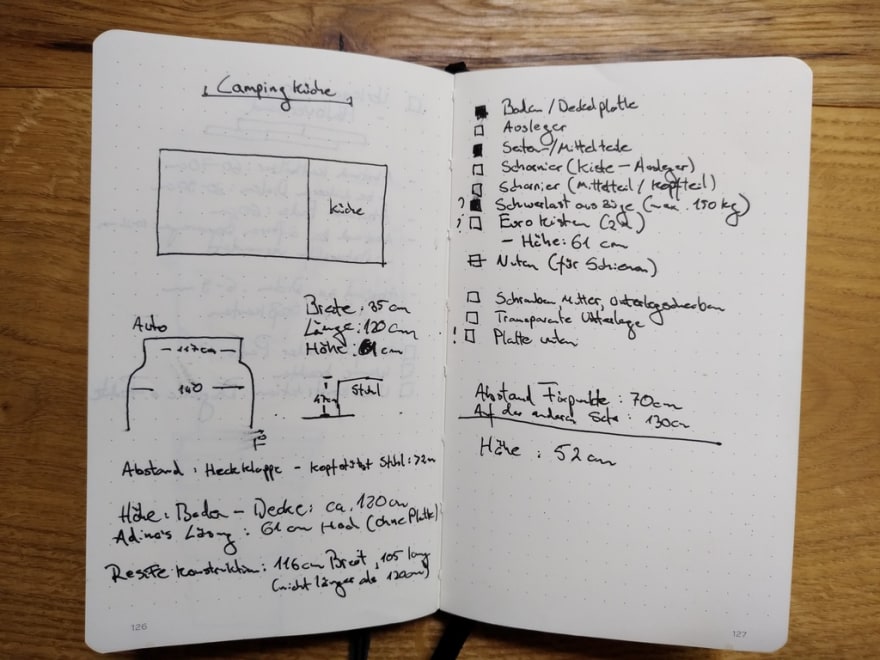 Camping Küche
Küche
Breite: 35 cm
Länge: 120 cm
Höhe: 61 cm
Auto
- 117cm -
140
47cm
Stuhl
Abstand: Heckklappe - Kopfstütze Stuhl: 72cm
Höhe: Boden - Decke: ca. 120cm
Adino's Lösung: 61 cm Hoch (ohne Platte)
Konstruktion: 116cm Breit, 105 lang
(nicht länger als 120cm)
126
Boden/Deckelplatte
Ausleger
Seiten-/Mittelteile
Scharnier (Kiste - Ausleger)
Scharnier (Mittelteil / Kopfteil)
? Schwerlast auszüge (max. 150 kg)
Euro Kisten (2x)
- Höhe: 61 cm
Nuten (für Schienen)
Schrauben Mutter, Unterlegscheiben
Transparente Unterlage
! Platte unten
Abstand Fixpunkte: 70cm
Auf der anderen Seite: 130cm
Höhe: 52 cm
127